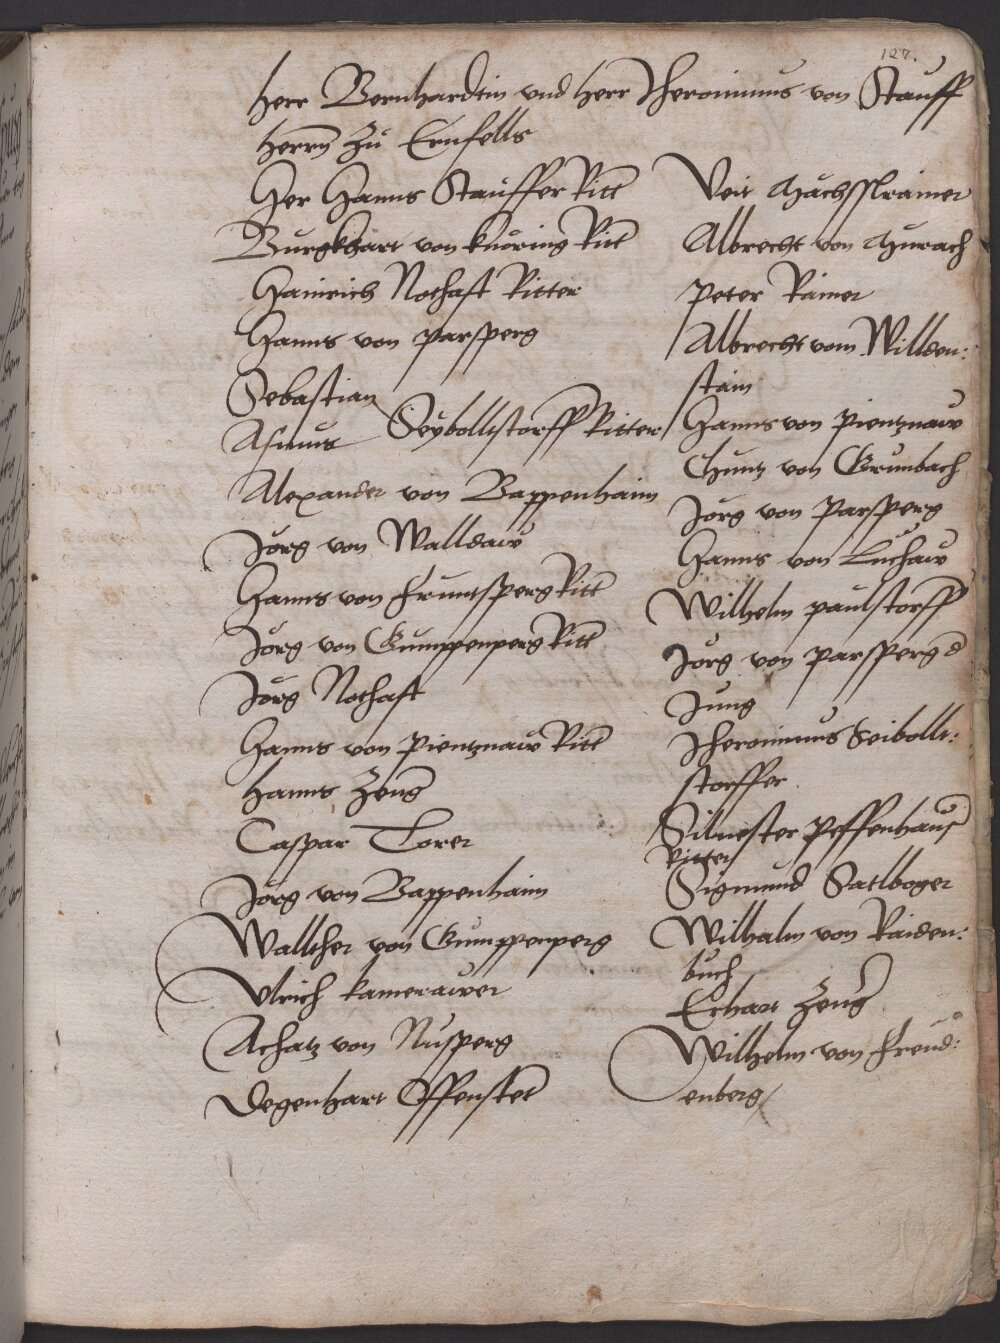 127.
Herr Bernhardin vnd Herr Jheronimus von Stauff
Herrn zu Ernfells
Her Hanns Stauffer Ritt
Burgkhart von Knöring Ritt
Hainrich Nothaft Ritter
Hanns von parsperg
Sebastian
Asmus Seyboltstorff Ritter
Alexander von Bappenhaim
Jörg von Walldaw
Hanns von fruntsperg Ritt
Jörg von Gumppenperg Ritt
Jörg Nothaft
Hanns von pientznaw Ritt
Hanns Zeng
Caspar Torer
Jörg von Bappenhaim
Wallther von Gumppenperg
Vlrich kamerawer
Achatz von Nusperg
Degenhart Offenstet
Veit
Albrecht von Aurach
peter Rainer
Albrecht vom Willden:
stain
Hanns von pientznaw
Chuntz von Grunbach
Jorg von parsperg
Hanns von Luchaw
Wilhelm paulstorff
Jörg von parsperg d
Jung
Jheronimus Seibollt:
storffer
Siluester peffenhauser
Ritter
Sigmund Satlboger
Wilhalm von Raiden:
buch
Erhart Zeng
Wilhelm von freud:
enberg/